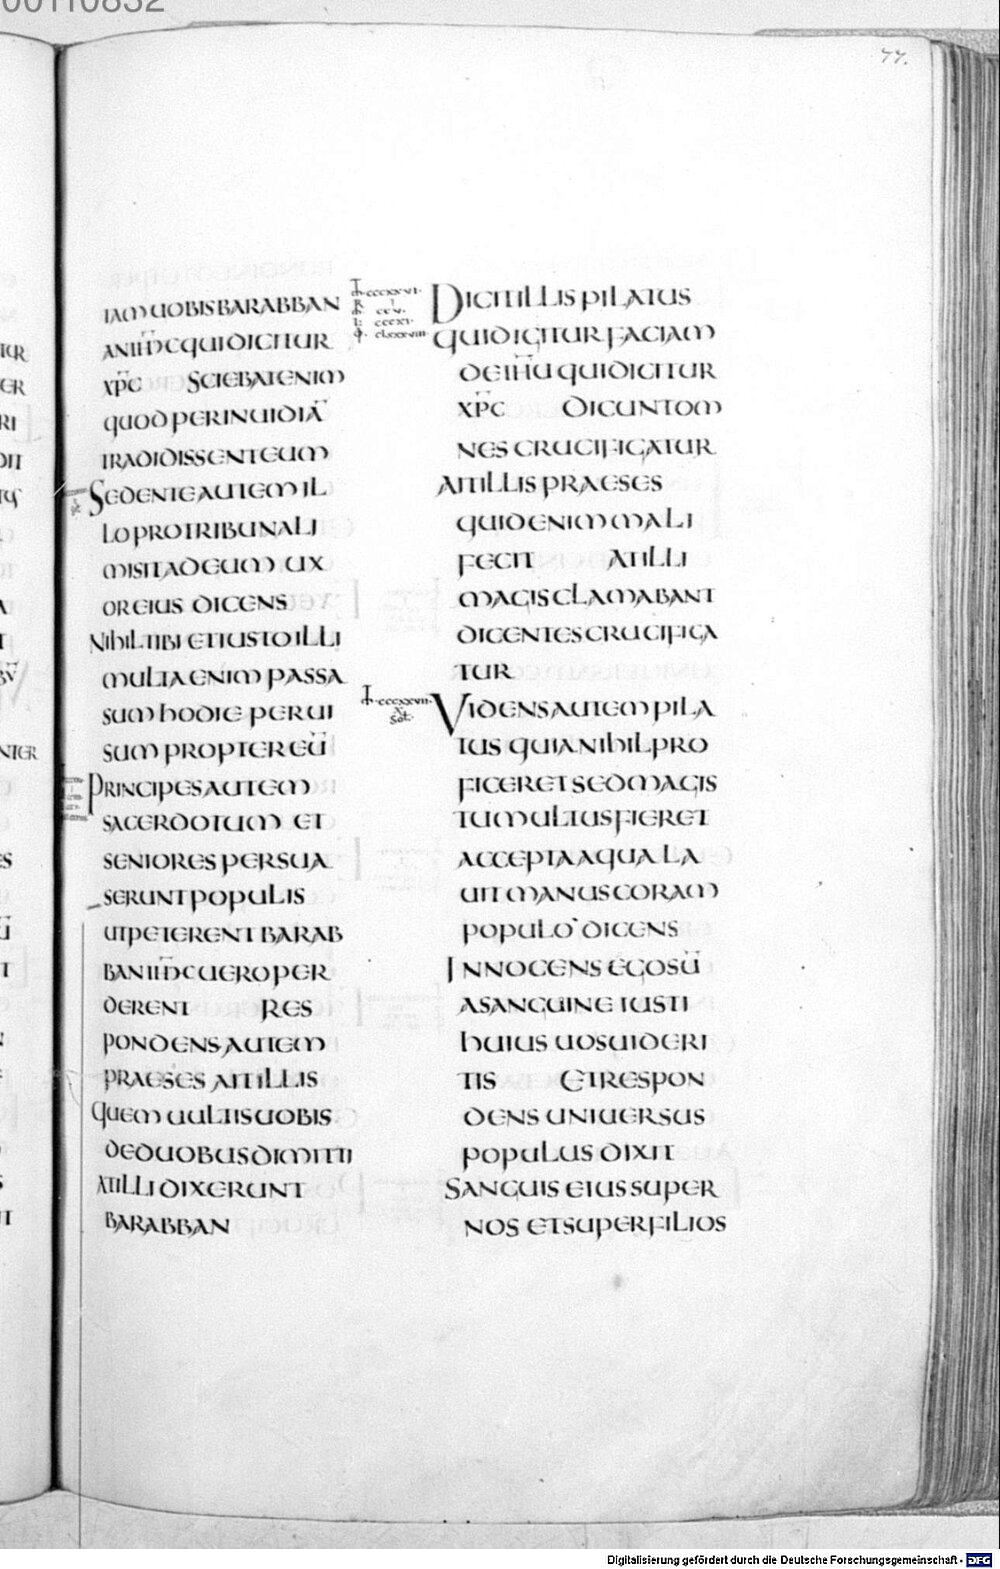 00110832
77.
IAM UOBIS BARABBAN
AN IHM QUI DICITUR
XPC SCIEBAT ENIM
QUOD PER INUIDIĀ
TRADIDISSENT EUM
SEDENTE AUTEM IL
LO PRO TRIBUNALI
MISIT AD EUM UX
OR EIUS DICENS
NIHIL TIBI ET IUSTO ILLI
MULTA ENIM PASSA
SUM HODIE PER UI
SUM PROPTER EŪ
PRINCIPES AUTEM
SACERDOTUM ET
SENIORES PERSUA
SERUNT POPULIS
UT PETERENT BARAB
BAN IHM UERO PER
DERENT RES
PONDENS AUTEM
PRAESES AIT ILLIS
QUEM UULTIS UOBIS
DE DUOBUS DIMITTI
AT ILLI DIXERUNT
BARABBAN
DICIT ILLIS PILATUS
QUID IGITUR FACIAM
DE IHU QUI DICITUR
XPC DICUNT OM
NES CRUCIFIGATUR
AIT ILLIS PRAESES
QUID ENIM MALI
FECIT AT ILLI
MAGIS CLAMABANT
DICENTES CRUCIFIGA
TUR
UIDENS AUTEM PILA
TUS QUIA NIHIL PRO
FICERET SED MAGIS
TUMULTUS FIERET
ACCEPTA AQUA LA
UIT MANUS CORAM
POPULO DICENS
INNOCENS EGO SŪ
A SANGUINE IUSTI
HUIUS UOS UIDERI
TIS ET RESPON
DENS UNIUERSUS
POPULUS DIXIT
SANGUIS EIUS SUPER
NOS ET SUPER FILIOS
Digitalisierung gefördert durch die Deutsche Forschungsgemeinschaft - DFG